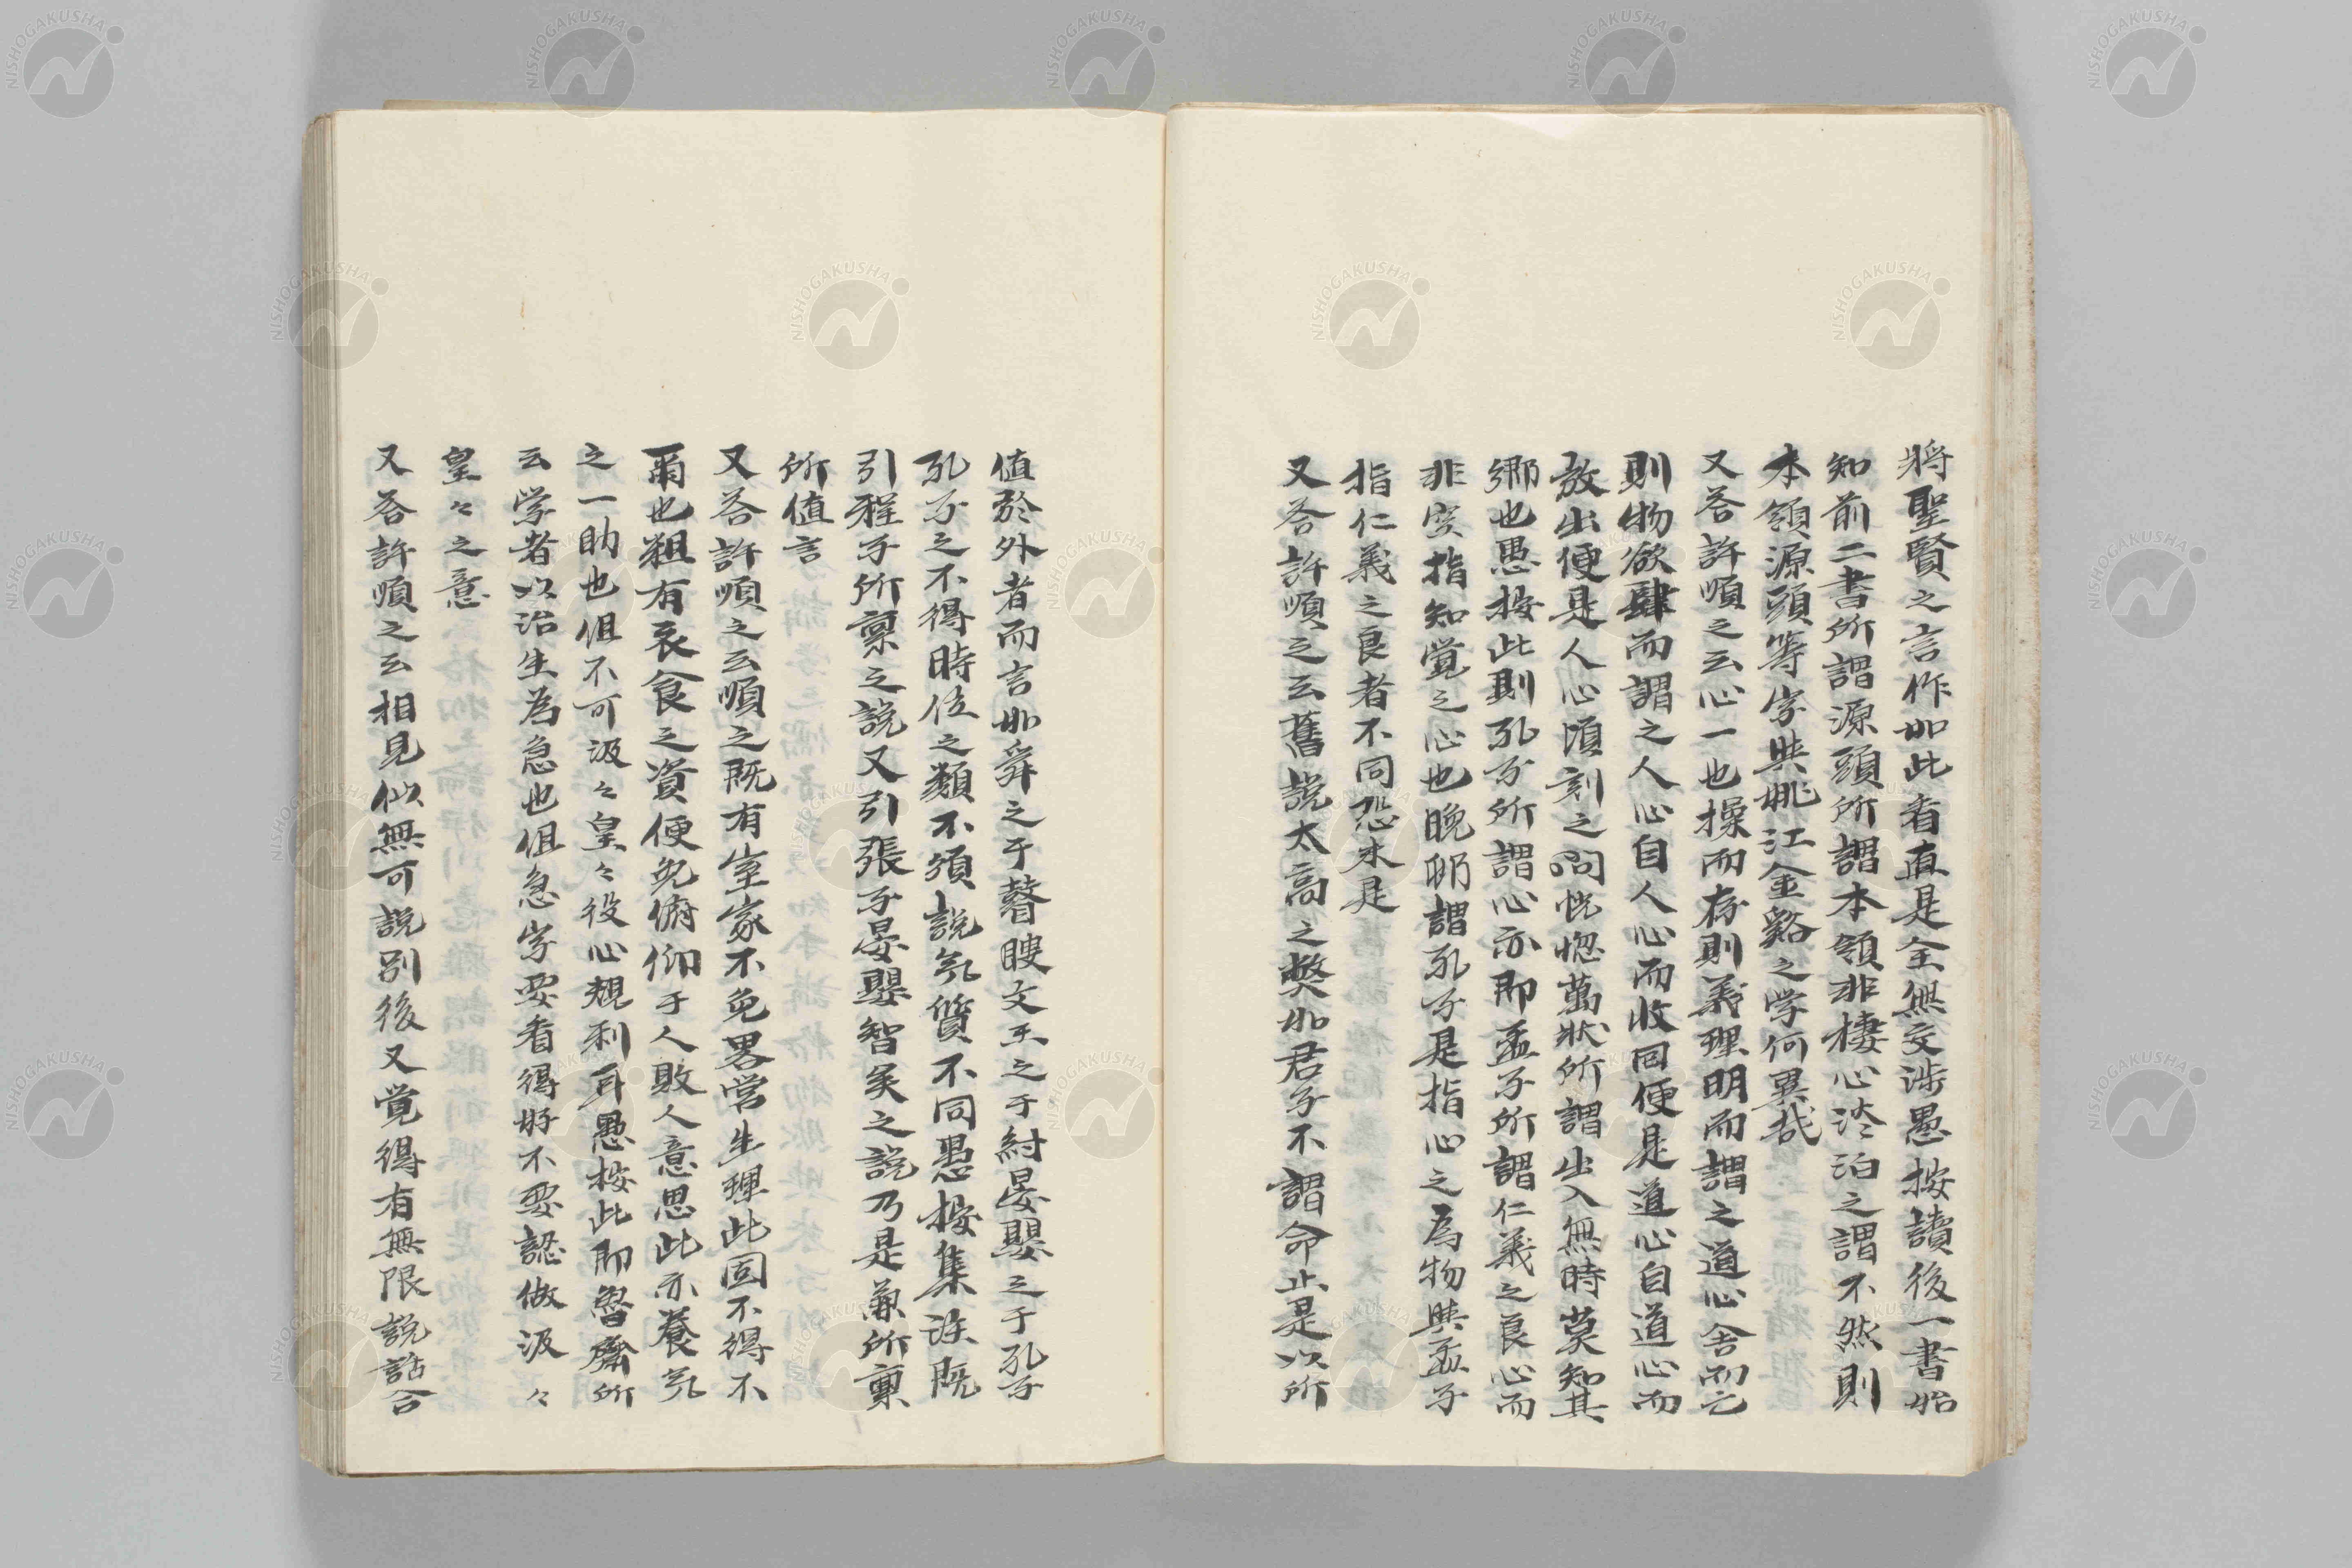 將聖賢之言作如此看直是全無交涉愚按讀後一書始
知前二書所謂源頭所謂本領非棲心淡泊之謂不然則
本領源頭等字與姚江金谿之学何異哉
又答許順之云心一也操而存則義理明而謂之道心舍而亡
則物欲肆而謂之人心自人心而收回便是道心自道心而
放出便是人心頃刻之間恍惚萬狀所謂出入無時莫知其
鄉也愚按此則孔子所謂心亦即孟子所謂仁義之良心而
非突指知覚之心也晩邨謂孔子是指心之為物與孟子
指仁義之良者不同恐未是
又答許順之云舊説太高之獘如君子不謂命止是以所
値於外者而言如舜之于瞽瞍文王之于紂晏嬰之于孔子
孔子之不得時位之類不須説氣質不同愚按集註既
引程子所稟之説又引張子晏嬰智矣之説乃是兼所稟
所値言
又答許順之云順之既有室家不免畧営生理此固不得不
爾也粗有衣食之資便免俯仰于人敗人意思此亦養氣
之一助也但不可汲々皇々役心規利耳愚按此即魯齋所
云学者以治生為急也但急字要看得好不要認做汲々
皇々之意
又答許順之云相見似無可説別後又覚得有無限説話合
NISHOGAKUSHA